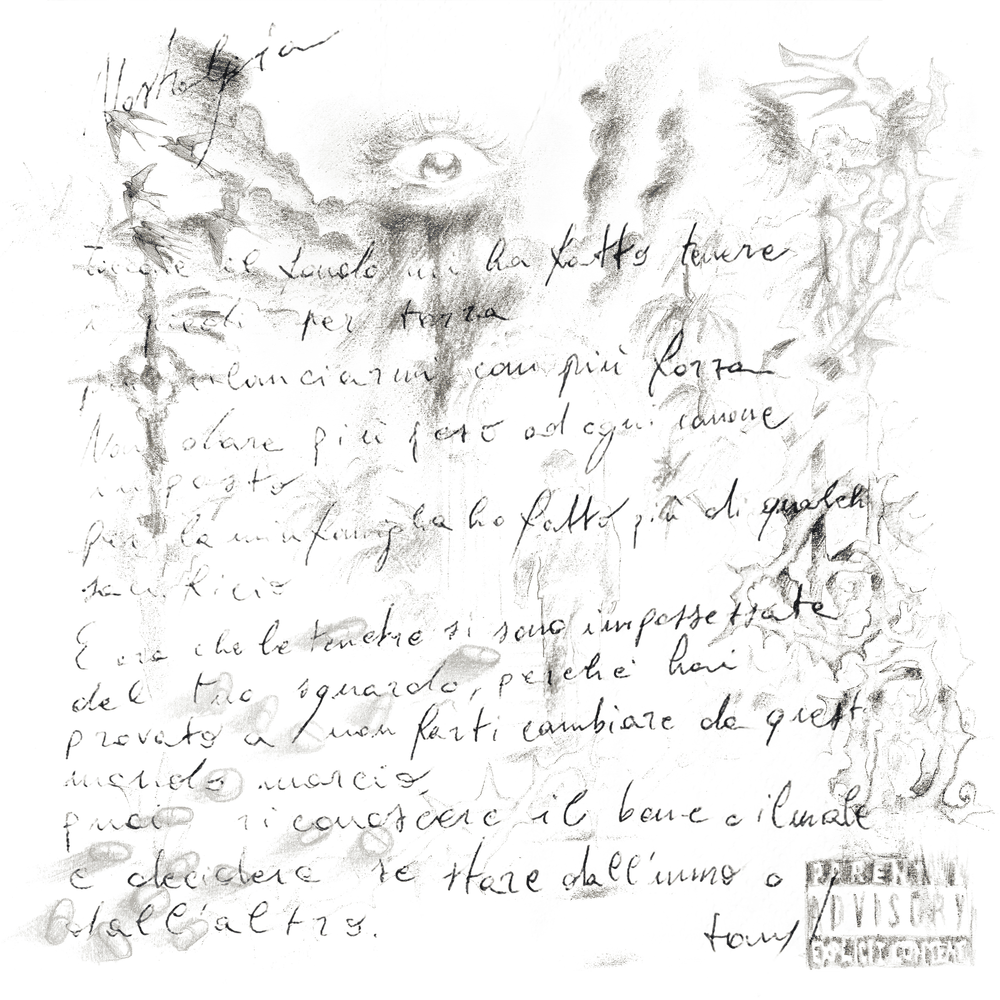 Nostalgia
Toccare il fondo mi ha fatto tenere
i piedi per terra
per rilanciarmi con più forza
Non dare più peso ad ogni canone
imposto
Per la mia famiglia ho fatto più di qualche
sacrificio
E ora che le tenebre si sono impossessate
del tuo sguardo, perché hai
provato a non farti cambiare da questo
mondo marcio,
puoi riconoscere il bene e il male
e decidere se stare dall'uno o
dall'altro.
Tony
PARENTAL
ADVISORY
EXPLICIT CONTENT